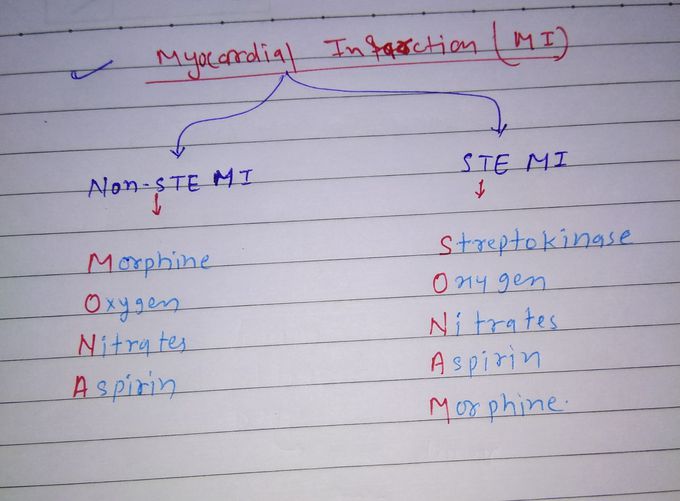 Myocardial Infarction (MI)
Non-STE MI
Morphine
Oxygen
Nitrates
Aspirin
STE MI
Streptokinase
Oxygen
Nitrates
Aspirin
Morphine.